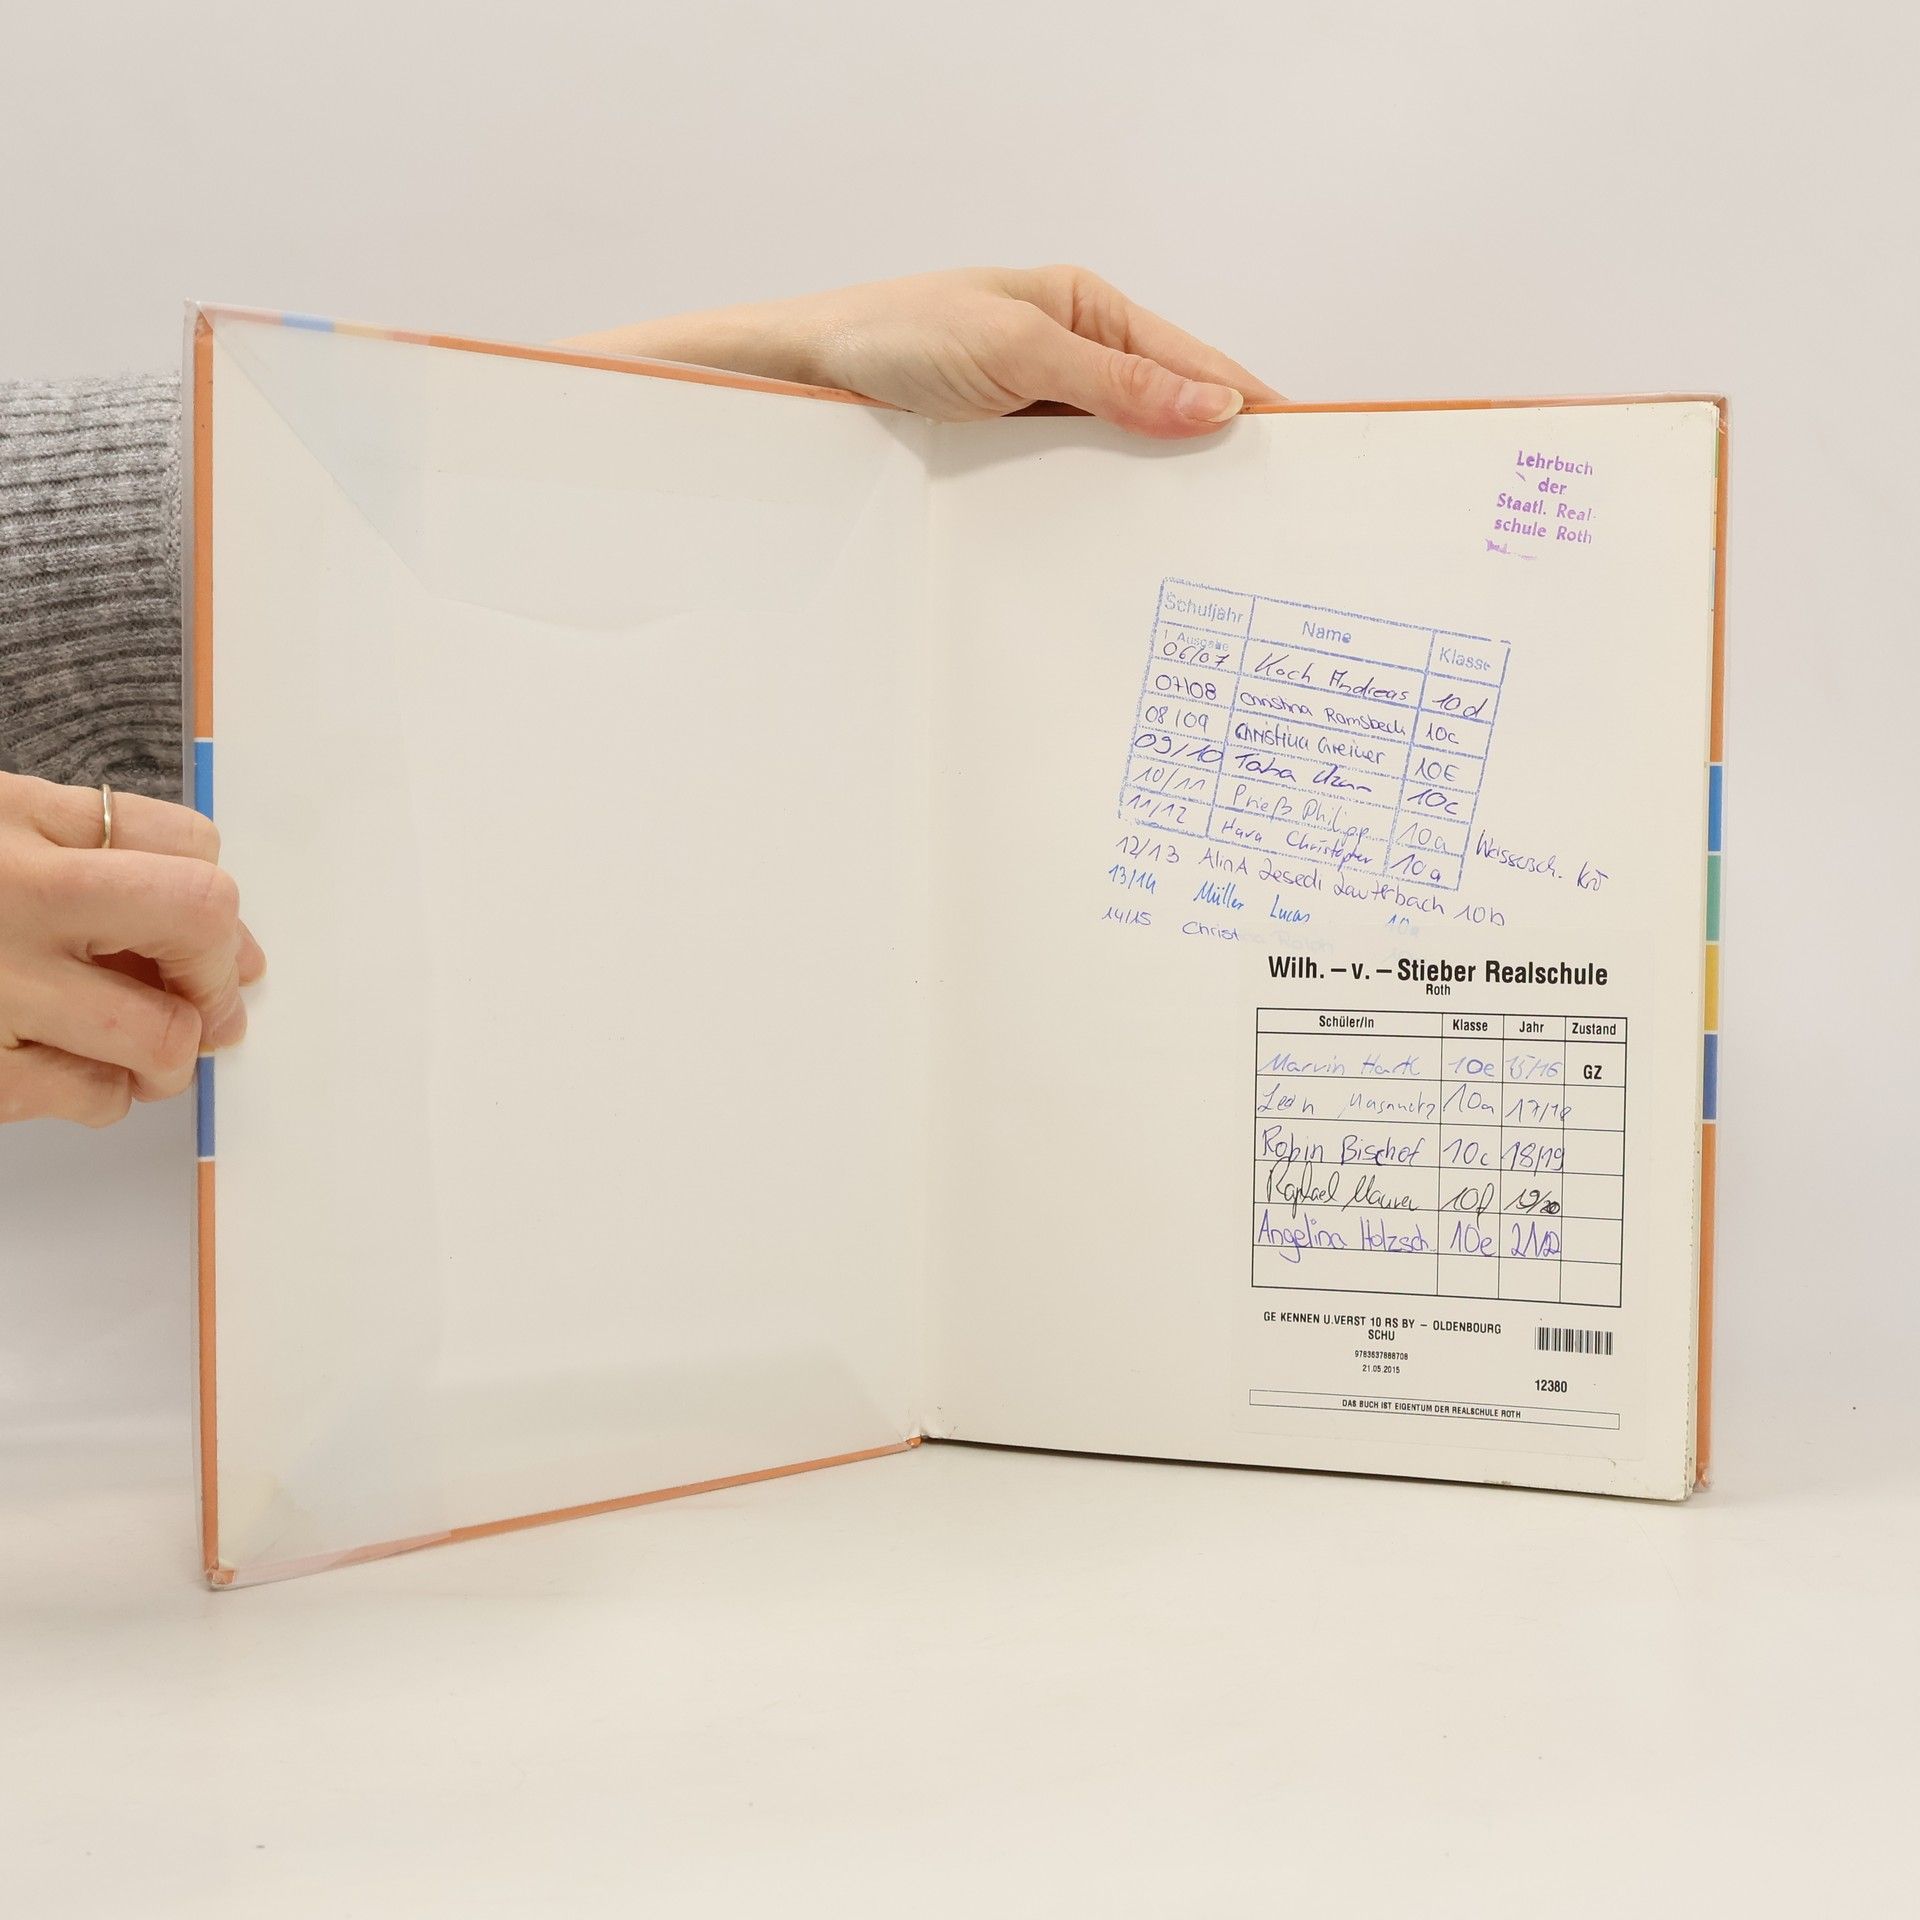 Lehrbuch
der
Staatl. Real-
schule Roth
Schuljahr Name Klasse
1. Ausgabe
06/07 Koch Andreas 10d
07/08 Christina Ramsbeck 10c
08/09 Christina Greiner 10E
09/10 Taha 10c
10/11 Prieß Philipp 10a
11/12 Christopher 10a
12/13 AlinA Lauterbach 10b
13/14 Müller Lucas 10a
14/15 Christina Ralph
Wilh. – v. – Stieber Realschule
Roth
Schüler/in Klasse Jahr Zustand
Marvin Hartl 10e 15/16 GZ
Leon 10a 17/18
Robin Bischof 10c 18/19
Raphael Maurer 10f 19/20
Angelina Holzsch. 10e 21/22
GE KENNEN U.VERST 10 RS BY – OLDENBOURG
SCHU
9783637888708
21.05.2015
12380
DAS BUCH IST EIGENTUM DER REALSCHULE ROTH